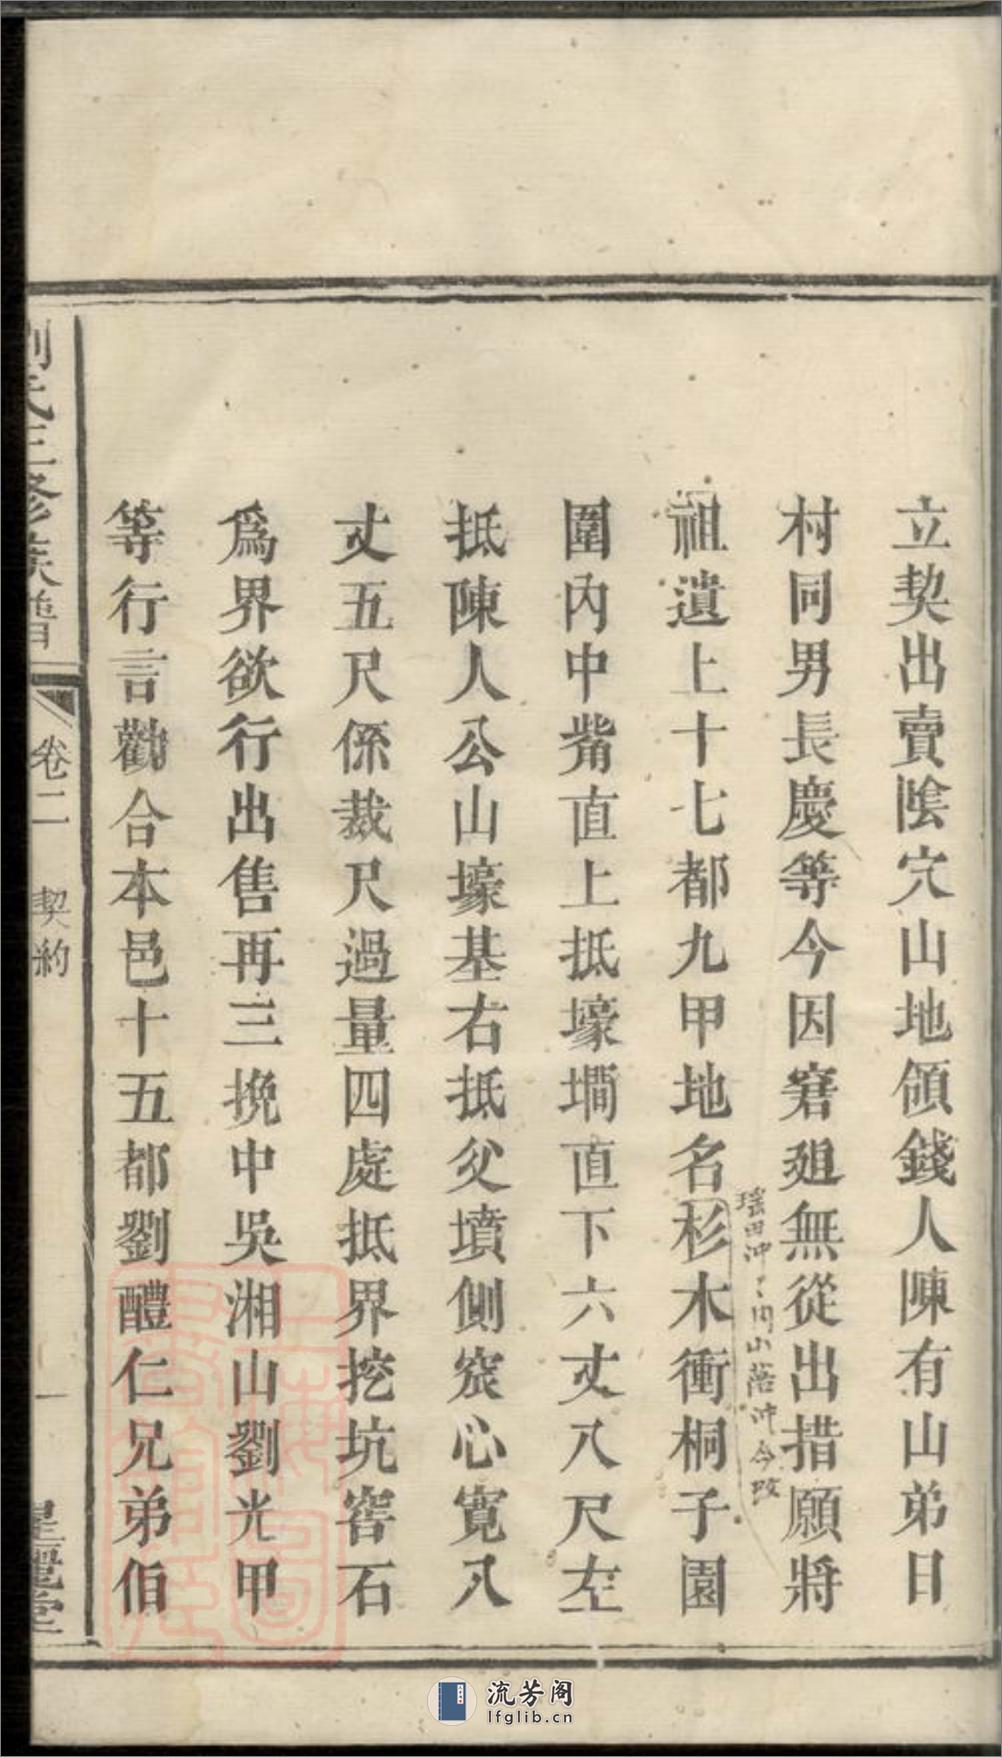 立契出賣陰穴山地領錢人陳有山弟日
村同男長慶等今因窘廹無從出措願將
祖遺上十七都九甲地名杉木衝桐子園
圍內中觜直上抵壕墹直下六丈八尺左
抵陳人公山壕基右抵父墳側窾心寬八
丈五尺係裁尺過量四處抵界挖坑窖石
為界欲行出售再三挽中吳湘山劉光甲
等行言勸合本邑十五都劉醴仁兄弟伯
劉氏三修族譜
卷二
契約
一
瑶田沖
山落沖今改
上海圖書館藏
流芳阁
lfglib.cn